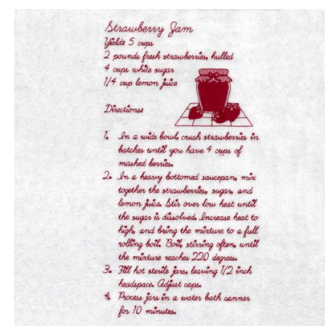 Strawberry Jam
Yields 5 cups
2 pounds fresh strawberries, hulled
4 cups white sugar
1/4 cup lemon juice
Directions:
1. In a wide bowl, crush strawberries in
batches until you have 4 cups of
mashed berries.
2. In a heavy bottomed saucepan, mix
together the strawberries, sugar, and
lemon juice. Stir over low heat until
the sugar is dissolved. Increase heat to
high, and bring the mixture to a full
rolling boil. Boil, stirring often, until
the mixture reaches 220 degrees.
3. Fill hot sterile jars, leaving 1/2 inch
headspace. Adjust caps.
4. Process jars in a water bath canner
for 10 minutes.